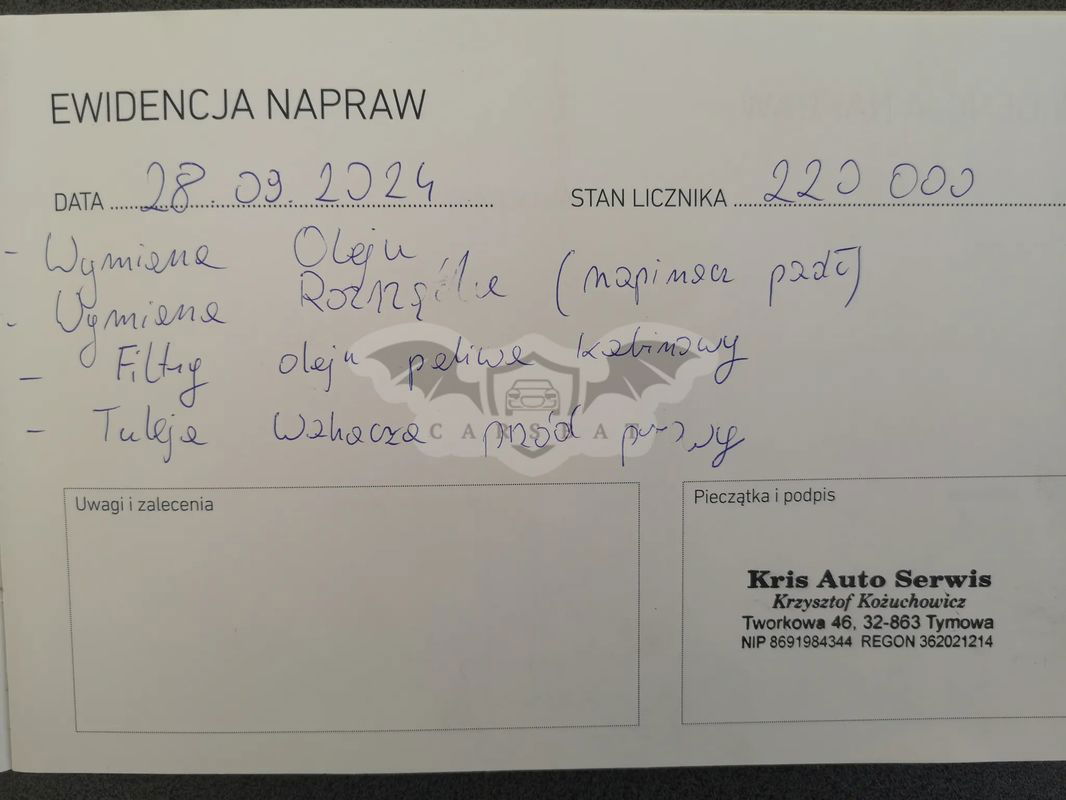 EWIDENCJA NAPRAW
DATA 28.09.2024 STAN LICZNIKA 220 000
- Wymiana Oleju
- Wymiana Rozrządu (napinacz padł)
- Filtry oleju paliwa kabinowy
- Tuleja Wahacza przód prawy
CARSBAT
Uwagi i zalecenia
Pieczątka i podpis
Kris Auto Serwis
Krzysztof Kożuchowicz
Tworkowa 46, 32-863 Tymowa
NIP 8691984344 REGON 362021214